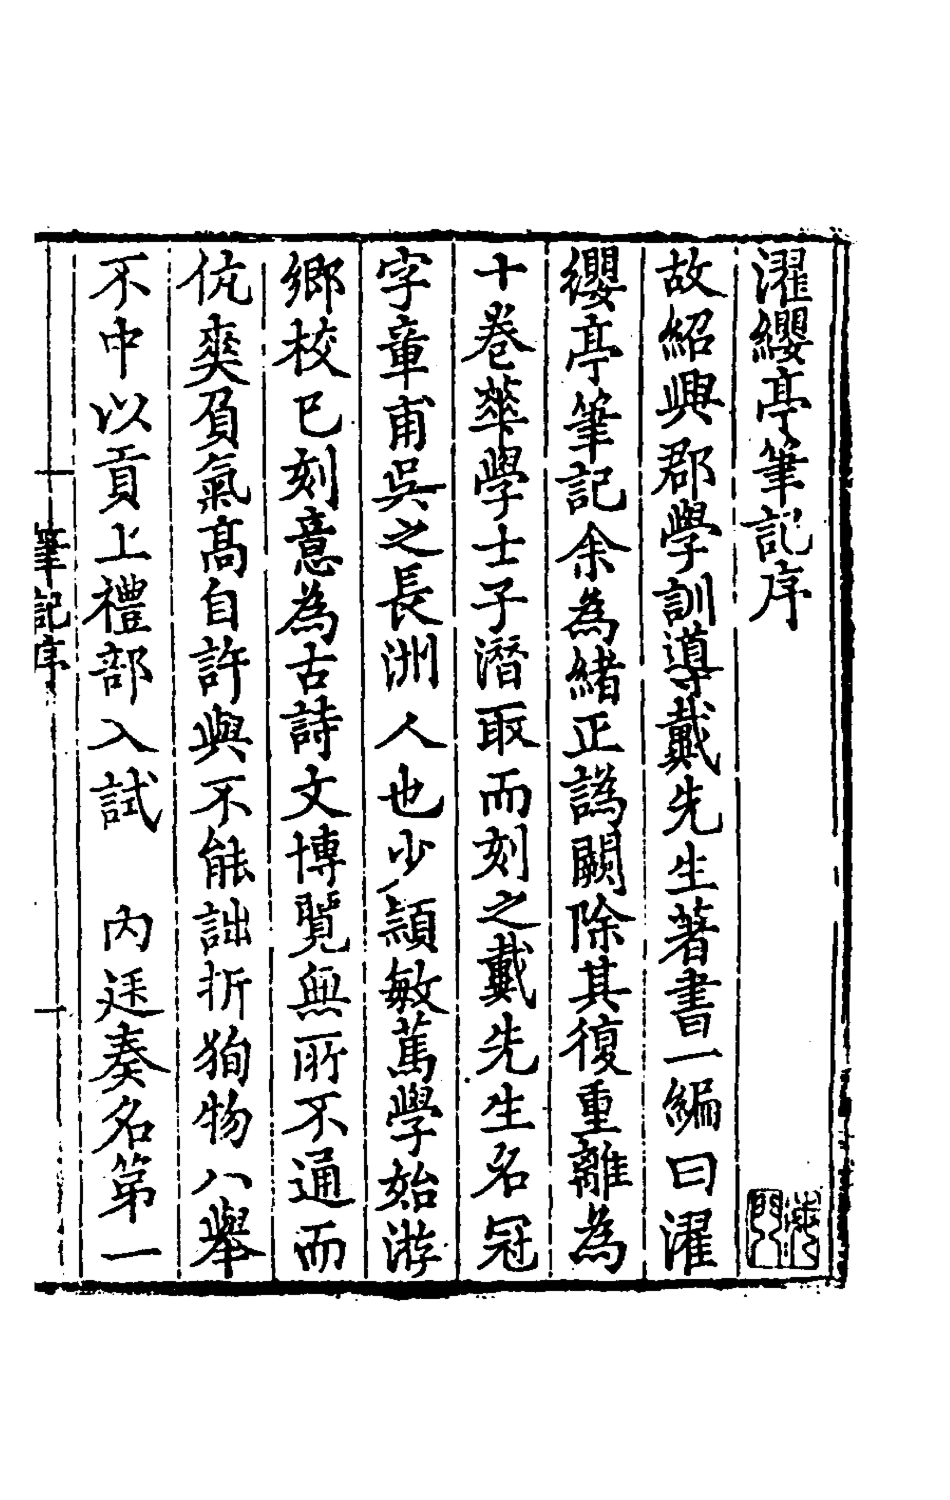 濯纓亭筆記序
故紹興郡學訓導戴先生著書一編曰濯
纓亭筆記余為緒正譌闕除其復重離為
十卷華學士子潛取而刻之戴先生名冠
字章甫吳之長洲人也少穎敏篤學始游
鄉校已刻意為古詩文博覽無所不通而
伉爽負氣高自許與不能詘折狥物八舉
不中以貢上禮部入試 內廷奏名第一
筆記序